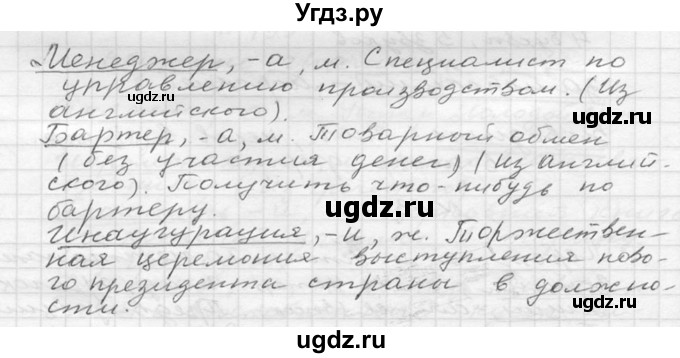 Угдз.ру
Менеджер, -а, м. Специалист по
управлению производством. (Из
ugdz.ru ugdz.ru
английского).
Бартер, -а, м. Товарный обмен
(без участия денег) (из англий-
ugdz.ru
ского). Получить что-нибудь по
бартеру.
ugdz.ru
Инаугурация, -и, ж. Торжествен-
ная церемония выступления ново-
го президента страны в должно-
ugdz.ru ugdz.ru
сти.
ugdz.ru